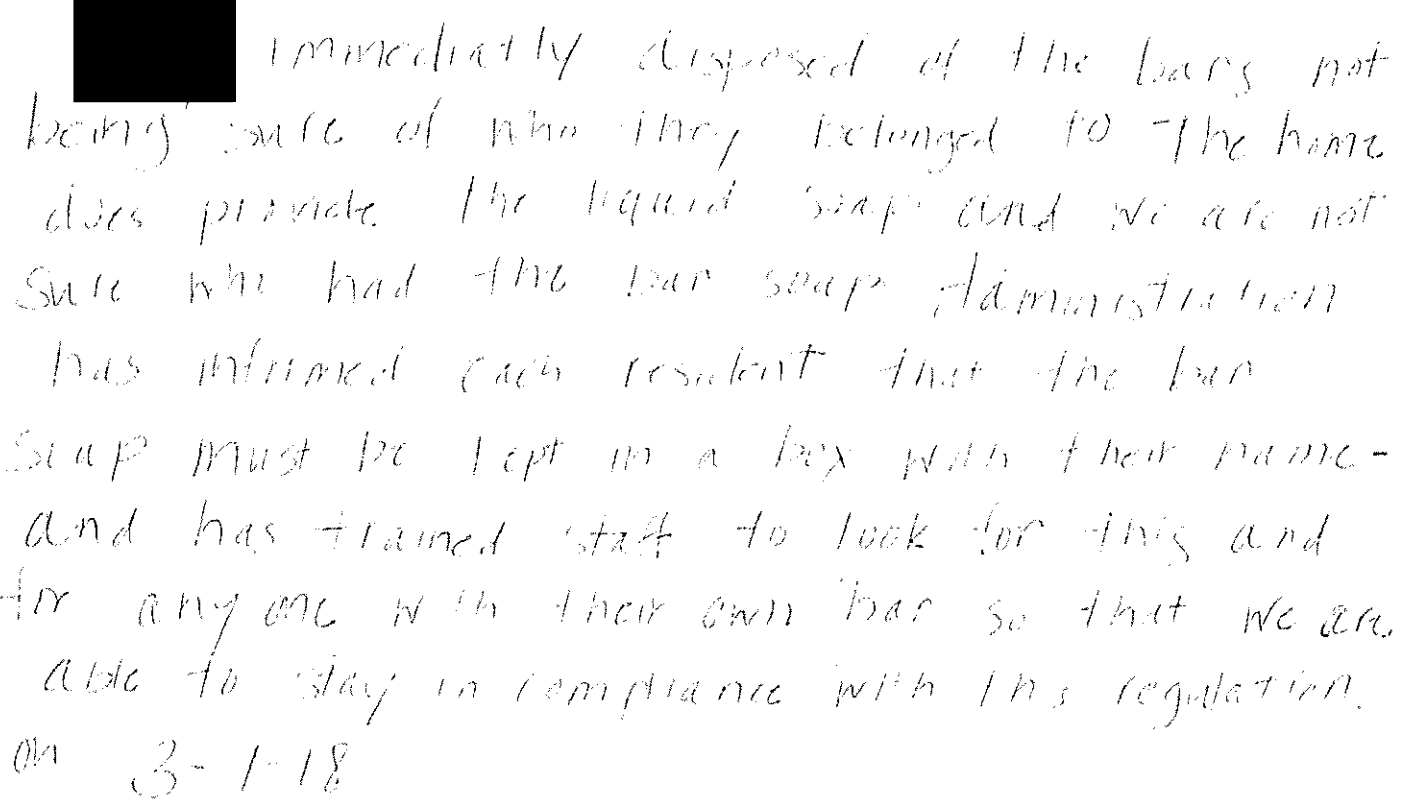 immediatly disposed of the bars not
being sure of who they belonged to the home
does provide the liquid soap and we are not
sure who had the bar soap Administration
has informed each resident that the bar
soap must be kept in a box with their name-
and has trained staff to look for this and
for anyone with their own bar so that we are
able to stay in compliance with this regulation.
on 3-1-18